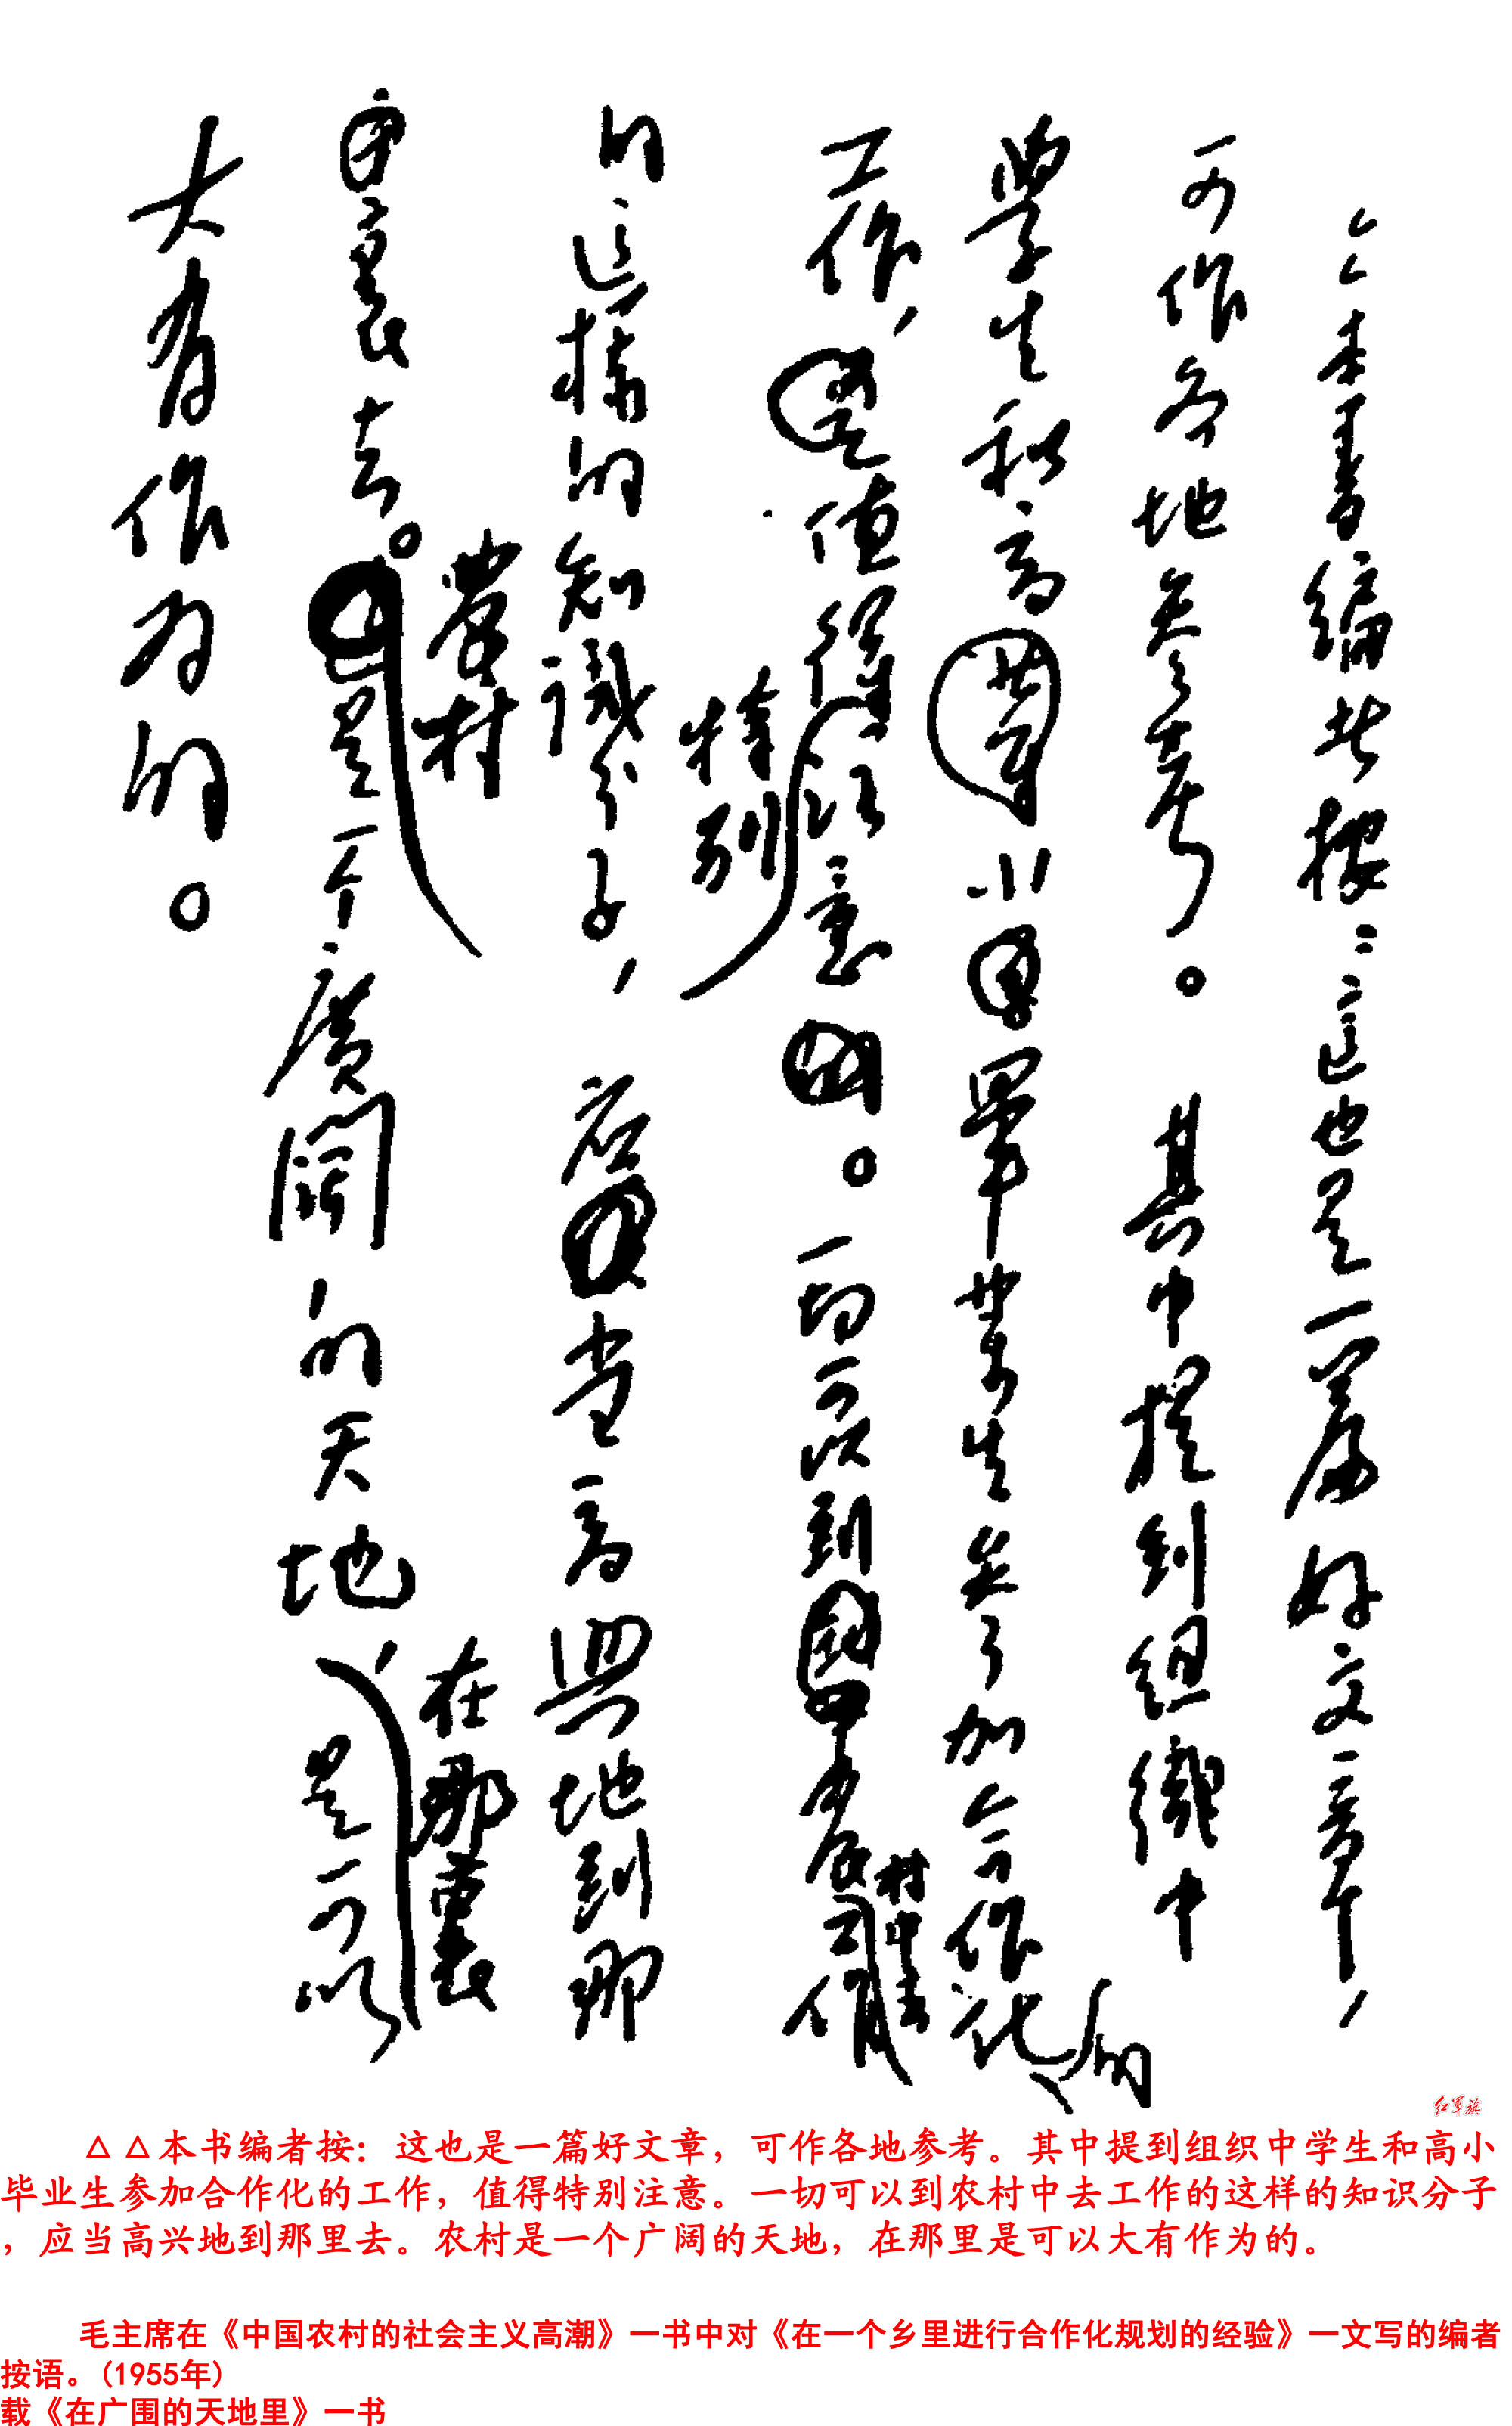 △△本書編者按：這也是一篇好文章，
可作各地參考。其中提到組織中
學生和高小畢業生參加合作化的
工作，值得特別注意。一切可以到農村中去工作
的這樣的知識分子，應當高興地到那
裏去。農村是一个廣闊的天地，在那裏是可以
大有作为的。
红军旗
△△本书编者按：这也是一篇好文章，可作各地参考。其中提到组织中学生和高小
毕业生参加合作化的工作，值得特别注意。一切可以到农村中去工作的这样的知识分子
，应当高兴地到那里去。农村是一个广阔的天地，在那里是可以大有作为的。
毛主席在《中国农村的社会主义高潮》一书中对《在一个乡里进行合作化规划的经验》一文写的编者
按语。(1955年)
载《在广围的天地里》一书